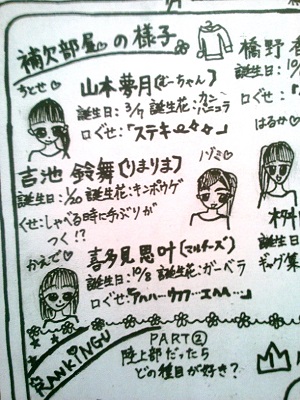 補欠部屋♡の様子
ちとせ♡
山本夢月(むーちゃん)
誕生日:3/7 誕生花:カンパニュラ
口ぐせ:「ステキ
吉池 鈴舞(りまりま)
誕生日:1/20 誕生花:キンポウゲ
くせ:しゃべる時に手ぶりが
つく!?
ノゾミ♡
かえで♡
喜多見思叶(マルチーズ)
誕生日:10/8 誕生花:ガーベラ
口ぐせ:「アハハ…ウフフ…エヘヘ…」
橋野
誕生日:10/
口ぐ
はるか♡
誕生日
ギャグ集
RANKINGU
PART②
陸上部だったら
どの種目が好き?
1